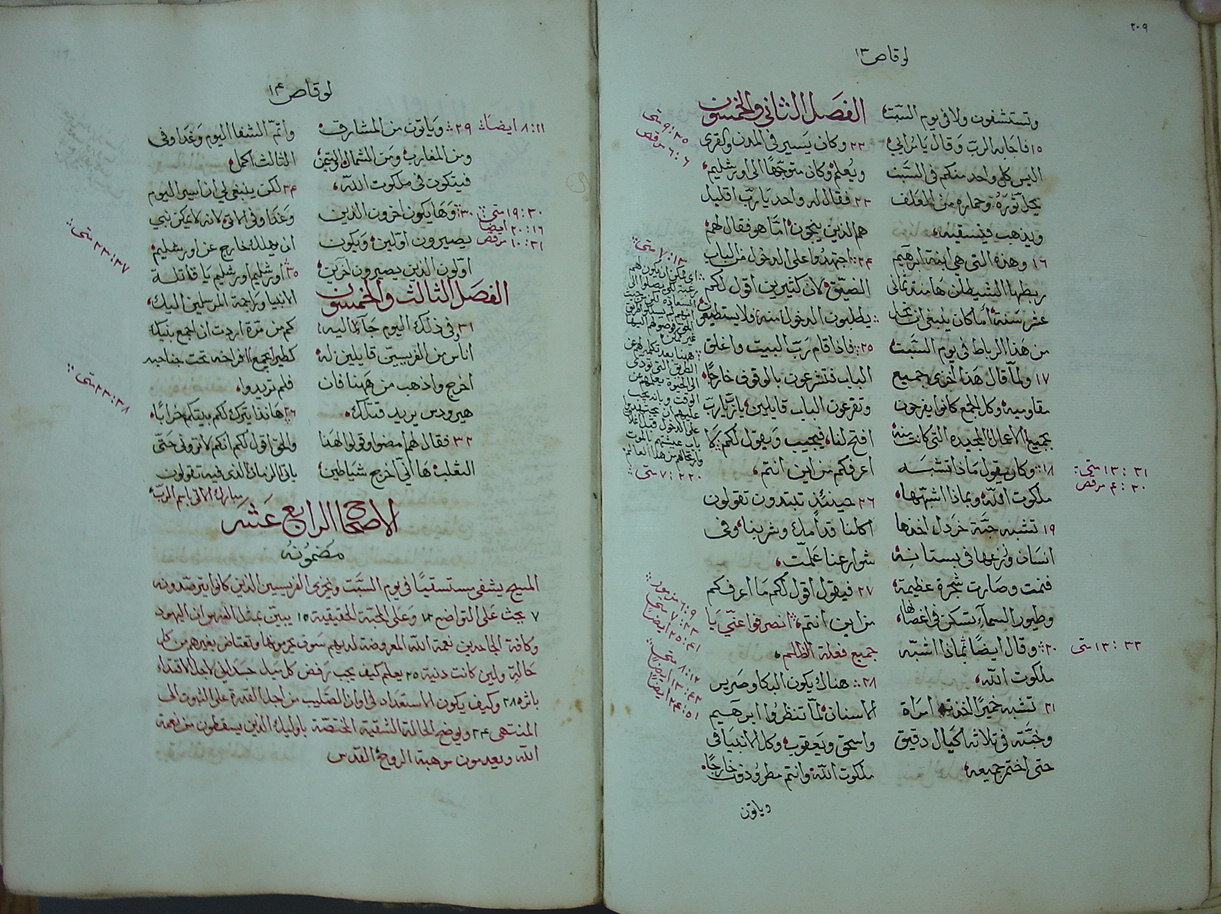 ٢٠٩
لوقاص ١٣
وتستشفون ولا في يوم السبت
١٥ فاجابه الرب وقال يا مرائي
اليس كل واحد منكم في السبت
يحل ثوره وحماره من المعلف
ويذهب فيسقيه
١٦ وهذه التي هي ابنة ابرهيم
ربطها الشيطان هامنذ ثماني
عشر سنة اما كان ينبغي ان تحل
من هذا الرباط في يوم السبت
١٧ ولما قال هذا اخزي جميع
مقاوميه وكل الجمع كانوا يفرحون
بجميع الاعمال المجيده التي كانت منه
١٨ وكان يقول ماذا تشبه
ملكوت الله وبماذا اشبهها
١٩ تشبه حبة خردل اخذها
انسان وزرعها في بستانه
فنمت وصارت شجرة عظيمة
وطيور السماء تسكن في اغصانها
٢٠ وقال ايضا بماذا اشبه
ملكوت الله
٢١ تشبه خميرا اخذته امراة
وخبته في ثلاثة اكيال دقيق
حتى اختمر جميعه
٣١ : ١٣ متى
٣٠ : ٤ مرقص
٣٣ : ١٣ متى
الفصل الثاني والخمسون
٢٢ وكان يسير في المدن والقرى
ويعلم وكان متوجها الى اورشليم
٢٣ فقال له واحد يا رب اقليل
هم الذين ينجون اما هو فقال لهم
٢٤ اجتهدوا على الدخول من الباب
الضيق لان كثيرين اقول لكم
يطلبون الدخول منه ولا يستطيعون
٢٥ فاذا قام رب البيت واغلق
الباب فتشرعون بالوقوف خارجا
وتقرعون الباب قايلين يا رب يا رب
افتح لنا فيجيب ويقول لكم لا
اعرفكم من اين انتم
٢٦ حينئذ تبتدون تقولون
اكلنا قدامك وشربنا وفي
شوارعنا علمت
٢٧ فيقول اقول لكم ما اعرفكم
من اين انتم انصرفوا عني يا
جميع فعلة الظلم
٢٨ هناك يكون البكا وصرير
الاسنان لما تنظروا ابرهيم
واسحق ويعقوب وكل الانبيا في
ملكوت الله وانتم مطرودون خارجا
وياتون
٣٥ : ٩ متى
٦ : ٦ مرقص
١٣ : ٧ متى
٩ : ٦ مزمور
٢٣ : ٧ متى
٤١ : ٢٥ ايضا
١٢ : ٨ متى
٤٢ : ١٣ ايضا
٥١ : ٢٤ ايضا
لوقاص ١٤
١١ : ٨ ايضا
٢٩ وياتون من المشارق
ومن المغارب ومن الشمال والتيمن
فيتكون في ملكوت الله
٣٠ وها يكون اخرون الذين
يصيرون اولين ويكون
اولون الذين يصيرون اخرين
٣٠ : ١٩ متى
١٦ : ٢٠ ايضا
٣١ : ١٠ مرقص
الفصل الثالث والخمسون
٣١ وفي ذلك اليوم جا اليه
اناس من الفريسين قايلين له
اخرج واذهب من ههنا فان
هيرودس يريد قتلك
٣٢ فقال لهم امضوا وقولوا لهذا
الثعلب ها اني اخرج شياطين
واتم الشفا اليوم وغدا وفي
الثالث اكمل
٣٣ لكن ينبغي لي ان اسير اليوم
وغدا وفي الاتي لانه لا يمكن نبي
ان يهلك خارج عن اورشليم
اورشليم اورشليم يا قاتلة
الانبيا وراجمة المرسلين اليك
كم من مرة اردت ان اجمع بنيك
كطير يجمع افراخه تحت جناحيه
فلم تريدوا
هانذا يترك لكم بيتكم خرابا
والحق اقول لكم انكم لا تروني حتى
ياتي الزمان الذي فيه تقولون
مبارك الاتي باسم الرب
٣٧ : ٢٣ متى
٣٨ : ٢٣ متى
الاصحاح الرابع عشر
مضمونه
المسيح يشفي مستسقيا في يوم السبت ويخزي الفريسيين الذين كانوا يترصدونه
٧ يحث على التواضع ١٢ وعلى المحبة الحقيقية ١٥ يبين بمثل العرس ان اليهود
وكافة الجاحدين نعمة الله المعروضة لديهم سوف يحرمونها ويعتاض بغيرهم من كل
حالة ولين كانت دنية ٢٥ يعلم كيف يجب رفض كل ميل جسداني لاجل الاقتداء
باثره ٢٨ وكيف يكون الاستعداد في اوان الصليب من اجل القدرة على الثبوت الى
المنتهى ٣٤ ويوضح الحالة الشقية المختصة باوليك الذين يسقطون من نعمة
الله ويعدمون موهبة الروح القدس